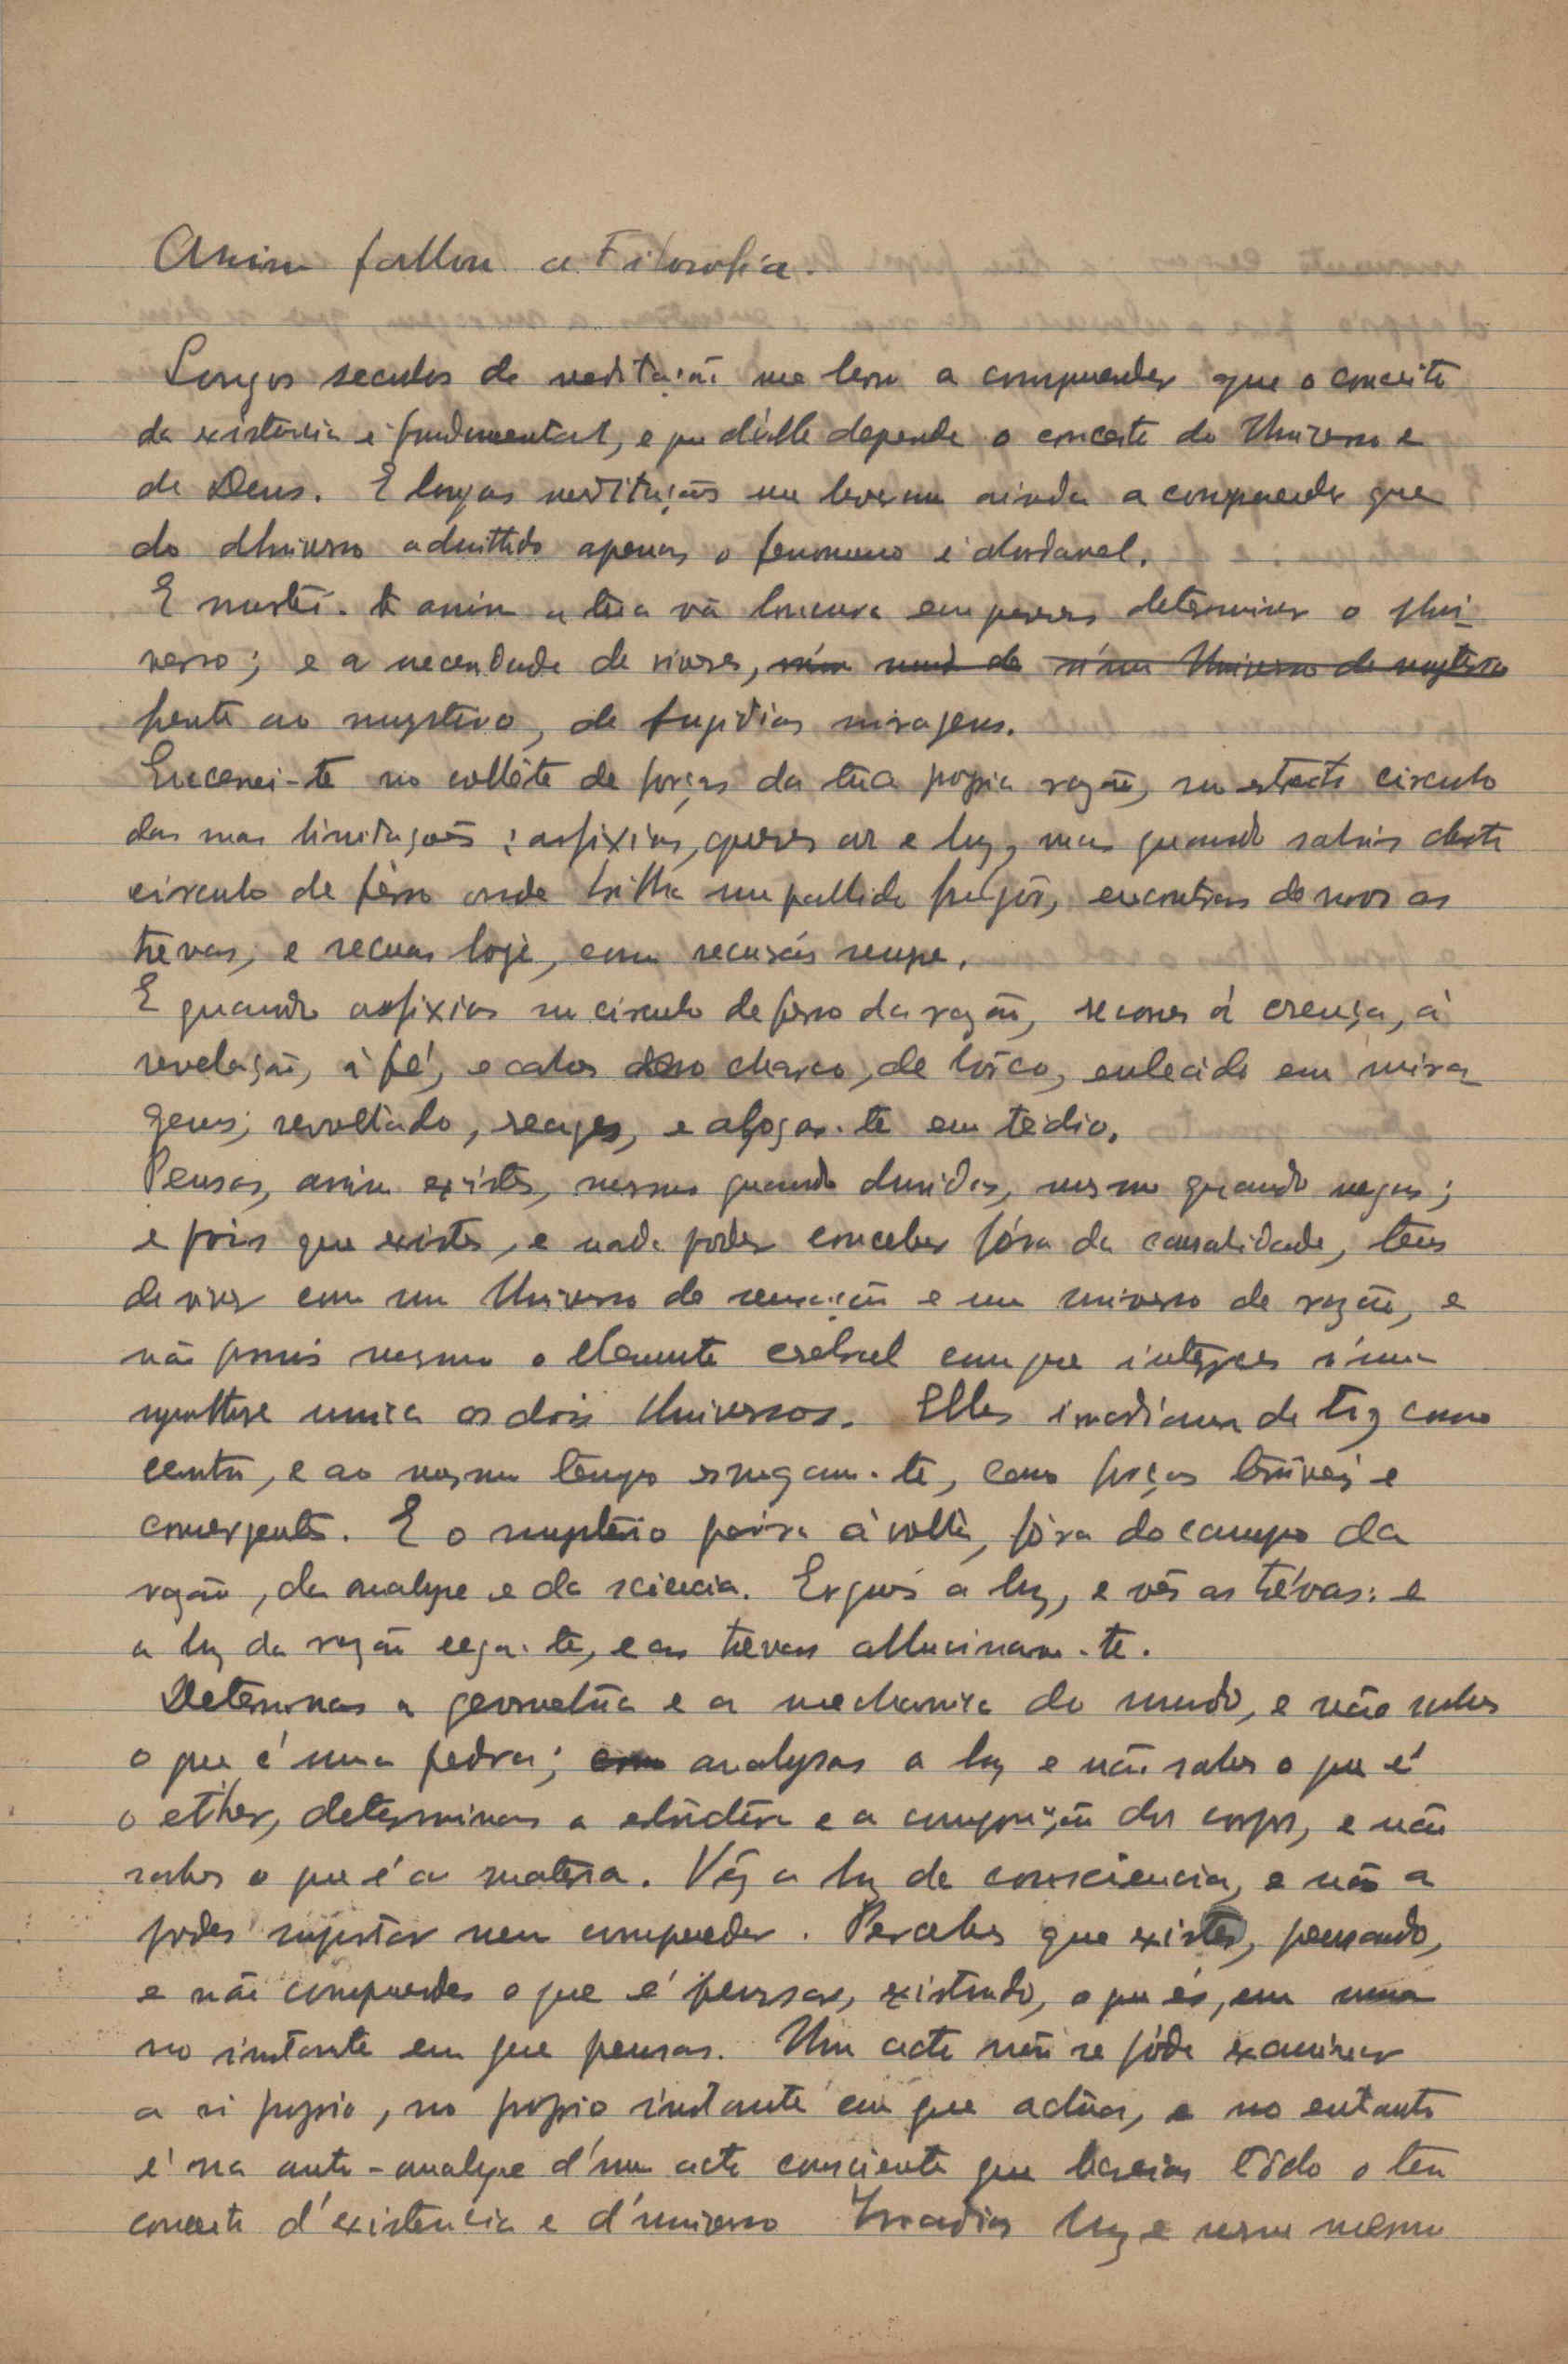 Assim fallou a Filosofia.
Longos seculos de meditação me levou a comprehender que o conceito
da existencia é fundamental, e que d'elle depende o conceito do Universo e
de Deus. E longas meditações me levaram ainda a comprehender que
do Universo admittido apenas o fenomeno é abordavel.
E mostrei-te assim a tua vã loucura em quereres determinar o Uni-
verso; e a necessidade de viveres, n'um mundo de n'um Universo de mysterio
frente ao mysterio, de fugidias miragens.
Encerrei-te no collête de forças da tua propria razão, no estreito circulo
das suas limitações: asfixias, queres ar e luz, mas quando sahes deste
circulo de ferro onde brilha um pallido fulgôr, encontras de novo as
trevas, e recuas logo, como recuarás sempre.
E quando asfixias no circulo de ferro da razão, recorres á crença, á
revelação, á fé, e cahes no charco, de borco, enlecido em mira-
gens; revoltado, reages, e afogas-te em tédio.
Pensas, assim existes, mesmo quando duvidas, mesmo quando negas;
e pois que existes, e nada podes conceber fóra da causalidade, tens
de viver com um Universo de sensação e um universo de razão, e
não possuis mesmo o elemento cerebral com que integres n'uma
synthese unica os dois Universos. Elles irradiam de ti como
centro, e ao mesmo tempo esmagam-te, como forças terriveis e
convergentes. E o mysterio paira á volta, fóra do campo da
razão, da analyse e da sciencia. Ergues a luz, e vês as trévas: e
a luz da razão cega-te, e as trevas allucinam-te.
Determinas a geometria e a mechanica do mundo, e não sabes
o que é uma pedra; com analysas a luz e não sabes o que é
o ether, determinas a estructura e a composição dos corpos, e não
sabes o que é a materia. Vês a luz da consciencia, e não a
podes supportar nem comprehender. Percebes que existes, pensando,
e não comprehendes o que é pensar, existindo, o que és, em summa
no instante em que pensas. Um acto não se póde examinar
a si proprio, no proprio instante em que actúa, e no entanto
é na auto-analyse d'um acto consciente que baseias todo o teu
conceito d'existencia e d'universo Irradias luz e nem mesmo